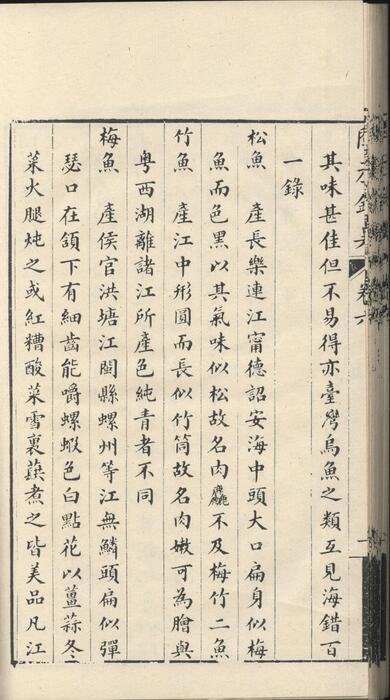 其味甚佳但不易得亦臺灣烏魚之類互見海錯百
一錄
松魚　產長樂連江甯德詔安海中頭大口扁身似梅
魚而色黑以其氣味似松故名肉麤不及梅竹二魚
竹魚　產江中形圓而長似竹筒故名肉嫩可為膾與
粵西湖離諸江所產色純青者不同
梅魚　產侯官洪塘江閩縣螺州等江無鱗頭扁似彈
瑟口在頷下有細齒能嚼螺蝦色白點花以薑蒜冬
菜火腿炖之或紅糟酸菜雪裏蕻煮之皆美品凡江
卷六